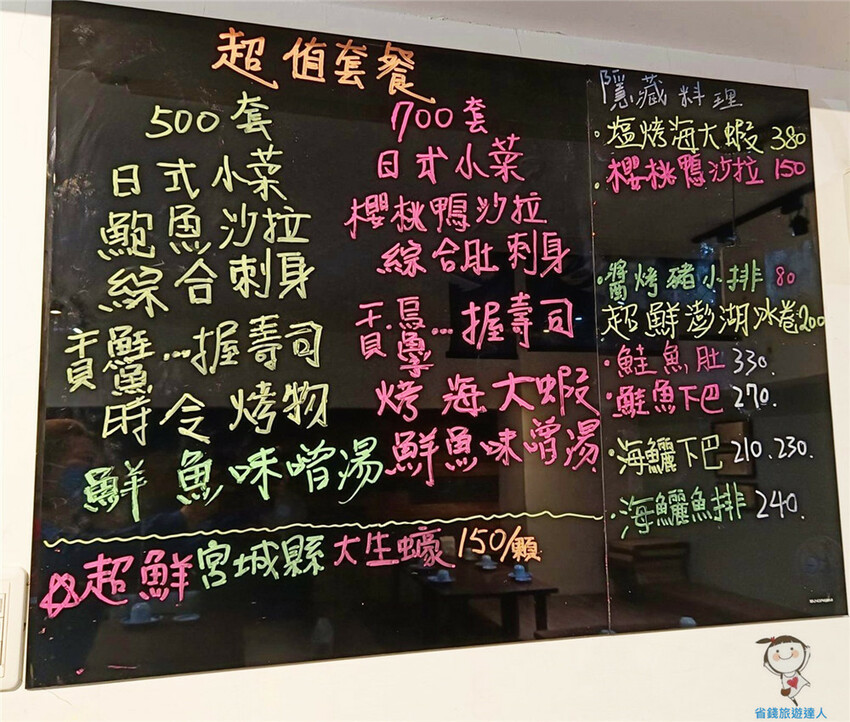 超值套餐
500套
日式小菜
鮑魚沙拉
綜合刺身
干貝...握壽司
時令烤物
鮮魚味噌湯
700套
日式小菜
櫻桃鴨沙拉
綜合肚刺身
干貝...握壽司
烤海大蝦
鮮魚味噌湯
超鮮宮城縣大生蠔150/顆
隱藏料理
·塩烤海大蝦 380
·櫻桃鴨沙拉 150
·醬烤豬小排 80
超鮮澎湖冰卷200
·鮭魚肚 330.
·鮭魚下巴 270.
·海鱺下巴 210.230.
·海鱺魚排 240.
省錢旅遊達人